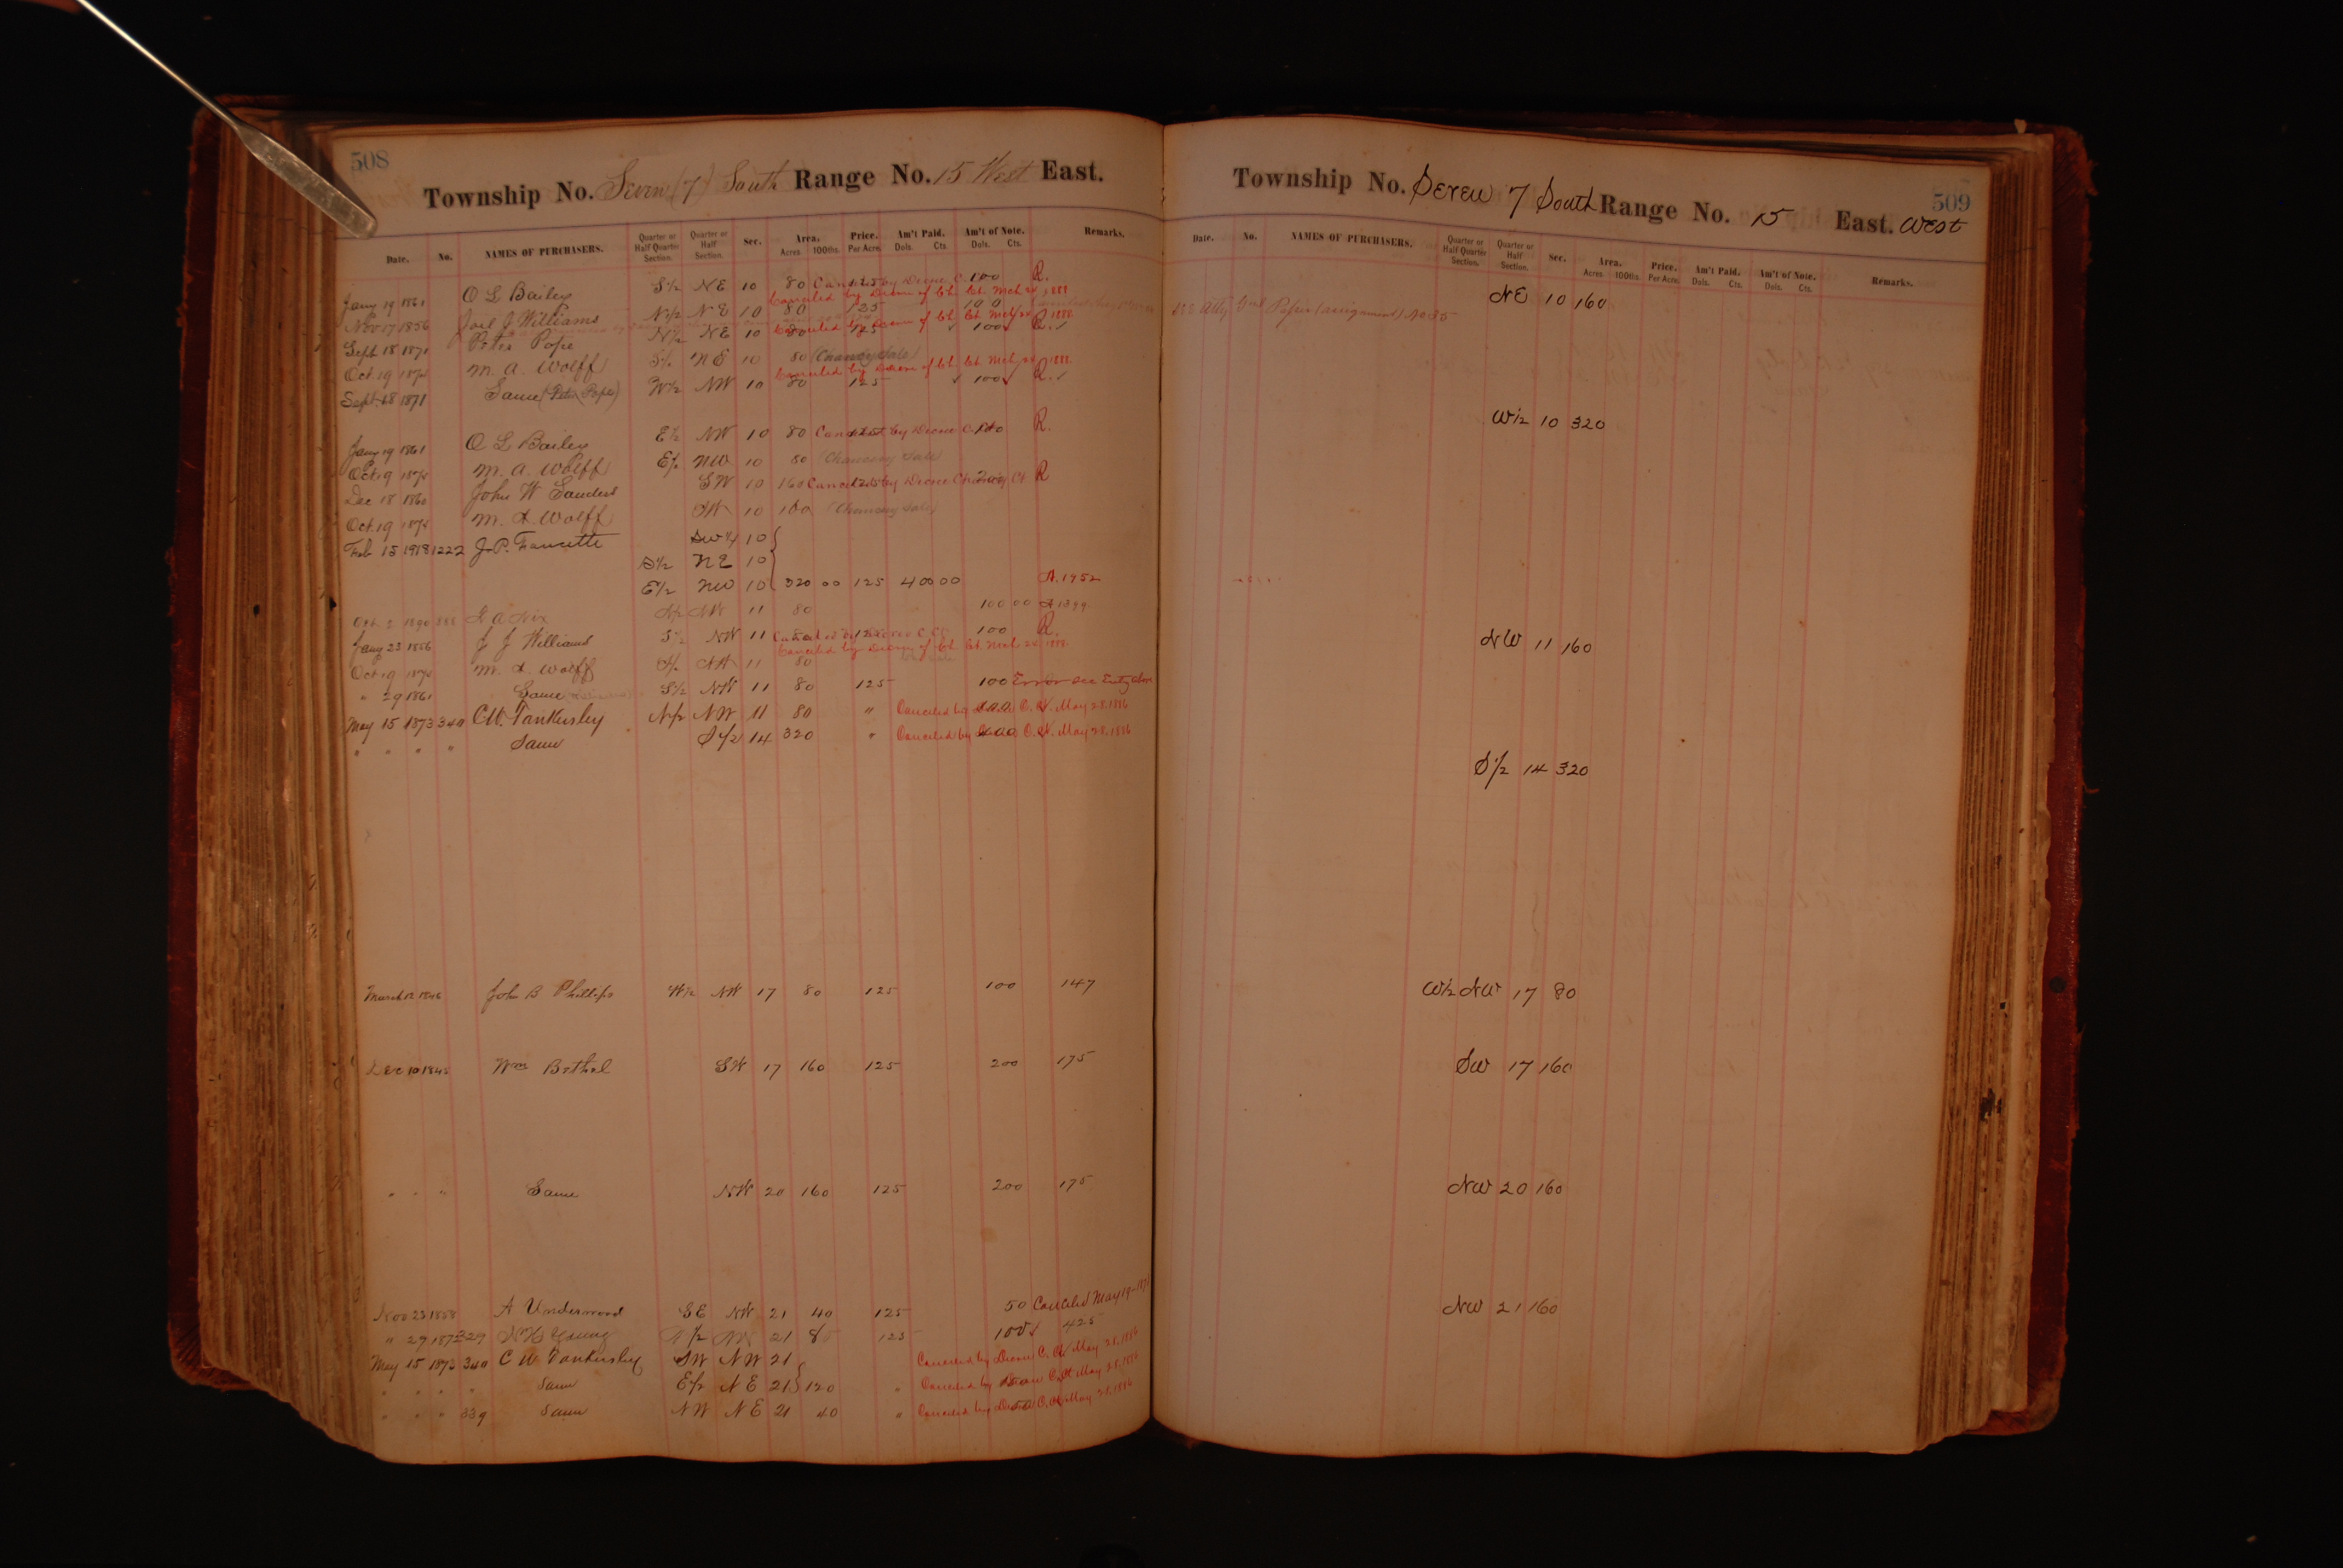 508
Township No. Seven (7) South Range No. 15 West East.
Date. No. NAMES OF PURCHASERS. Quarter or Half Quarter Section. Quarter or Half Section. Sec. Area. Acres 100ths. Price. Per Acre. Am't Paid. Dols. Cts. Am't of Note. Dols. Cts. Remarks.
Jany 19 1861 O L Bailey S½ NE 10 80 125 100 R.
Canceled by Decree of Ch. Ct. Mch 24, 1888
Nov 17 1856 Joel J Williams N½ NE 10 80 125 100
Canceled by Decree of Ch. Ct. Mch 24 1888
Sept 18 1871 Peter Pope N½ NE 10 80 125 ✓ 100 ✓ R. ✓
Oct. 19 M. A. Wolff S½ NE 10 80 (Chancery Sale)
Canceled by Decree of Ch. Ct. Mch 24, 1888
Sept. 18 1871 Same (Peter Pope) W½ NW 10 80 125 ✓ 100 ✓ R. ✓
Jany 19 1861 O L Bailey E½ NW 10 80 Canceled by Decree R.
Oct 19 M. A. Wolff E½ NW 10 80 (Chancery Sale)
Dec 18 1860 John W Sanders SW 10 160 Canceled by Decree R
Oct. 19 M. A. Wolff SW 10 160 (Chancery Sale)
Feb 15 1918 1222 J. P. Fancette SW¼ 10
S½ NE 10
E½ NW 10 320 00 125 400 00 A. 1952
Oct 2 1890 N½ NW 11 80 100 00 A 1399
Jany 23 1856 J J Williams S½ NW 11 80 100 R.
Canceled by Decree of Ch. Ct. Mch 24 1888
Oct 19 M. A. Wolff S½ NW 11 80
" 29 1861 Same S½ NW 11 80 125 100 Error see Entry above
May 15 1873 340 C W. Tankersley N½ NW 11 80 " Canceled by Decree C. Ct. May 28. 1886
" " " " Same S½ 14 320 " 400 Canceled by C. Ct. May 28. 1886
March 12 1846 John B Phillips W½ NW 17 80 125 100 147
Dec 10 1845 Wm Bethel SW 17 160 125 200 175
" " " Same NW 20 160 125 200 175
Nov 23 1858 A Underwood SE NW 21 40 125 50 Canceled May 19
" 29 1872 329 N H Young N½ NW 21 80 125 100 ✓ 425
May 15 1873 340 C W Tankersley SW NW 21 Canceled by Decree C. Ct. May 28. 1886
" " " " Same E½ NE 21 120 " Canceled by Decree C. Ct May 28. 1886
" " " 339 Same NW NE 21 40 " Canceled by Decree C. Ct May 28. 1886
509
Township No. Seven 7 South Range No. 15 East. West
Date. No. NAMES OF PURCHASERS. Quarter or Half Quarter Section. Quarter or Half Section. Sec. Area. Acres 100ths. Price. Per Acre. Am't Paid. Dols. Cts. Am't of Note. Dols. Cts. Remarks.
NE 10 160
See Atty Genl Papers (assignment) No 35
W½ 10 320
NW 11 160
S½ 14 320
W½ NW 17 80
SW 17 160
NW 20 160
NW 21 160